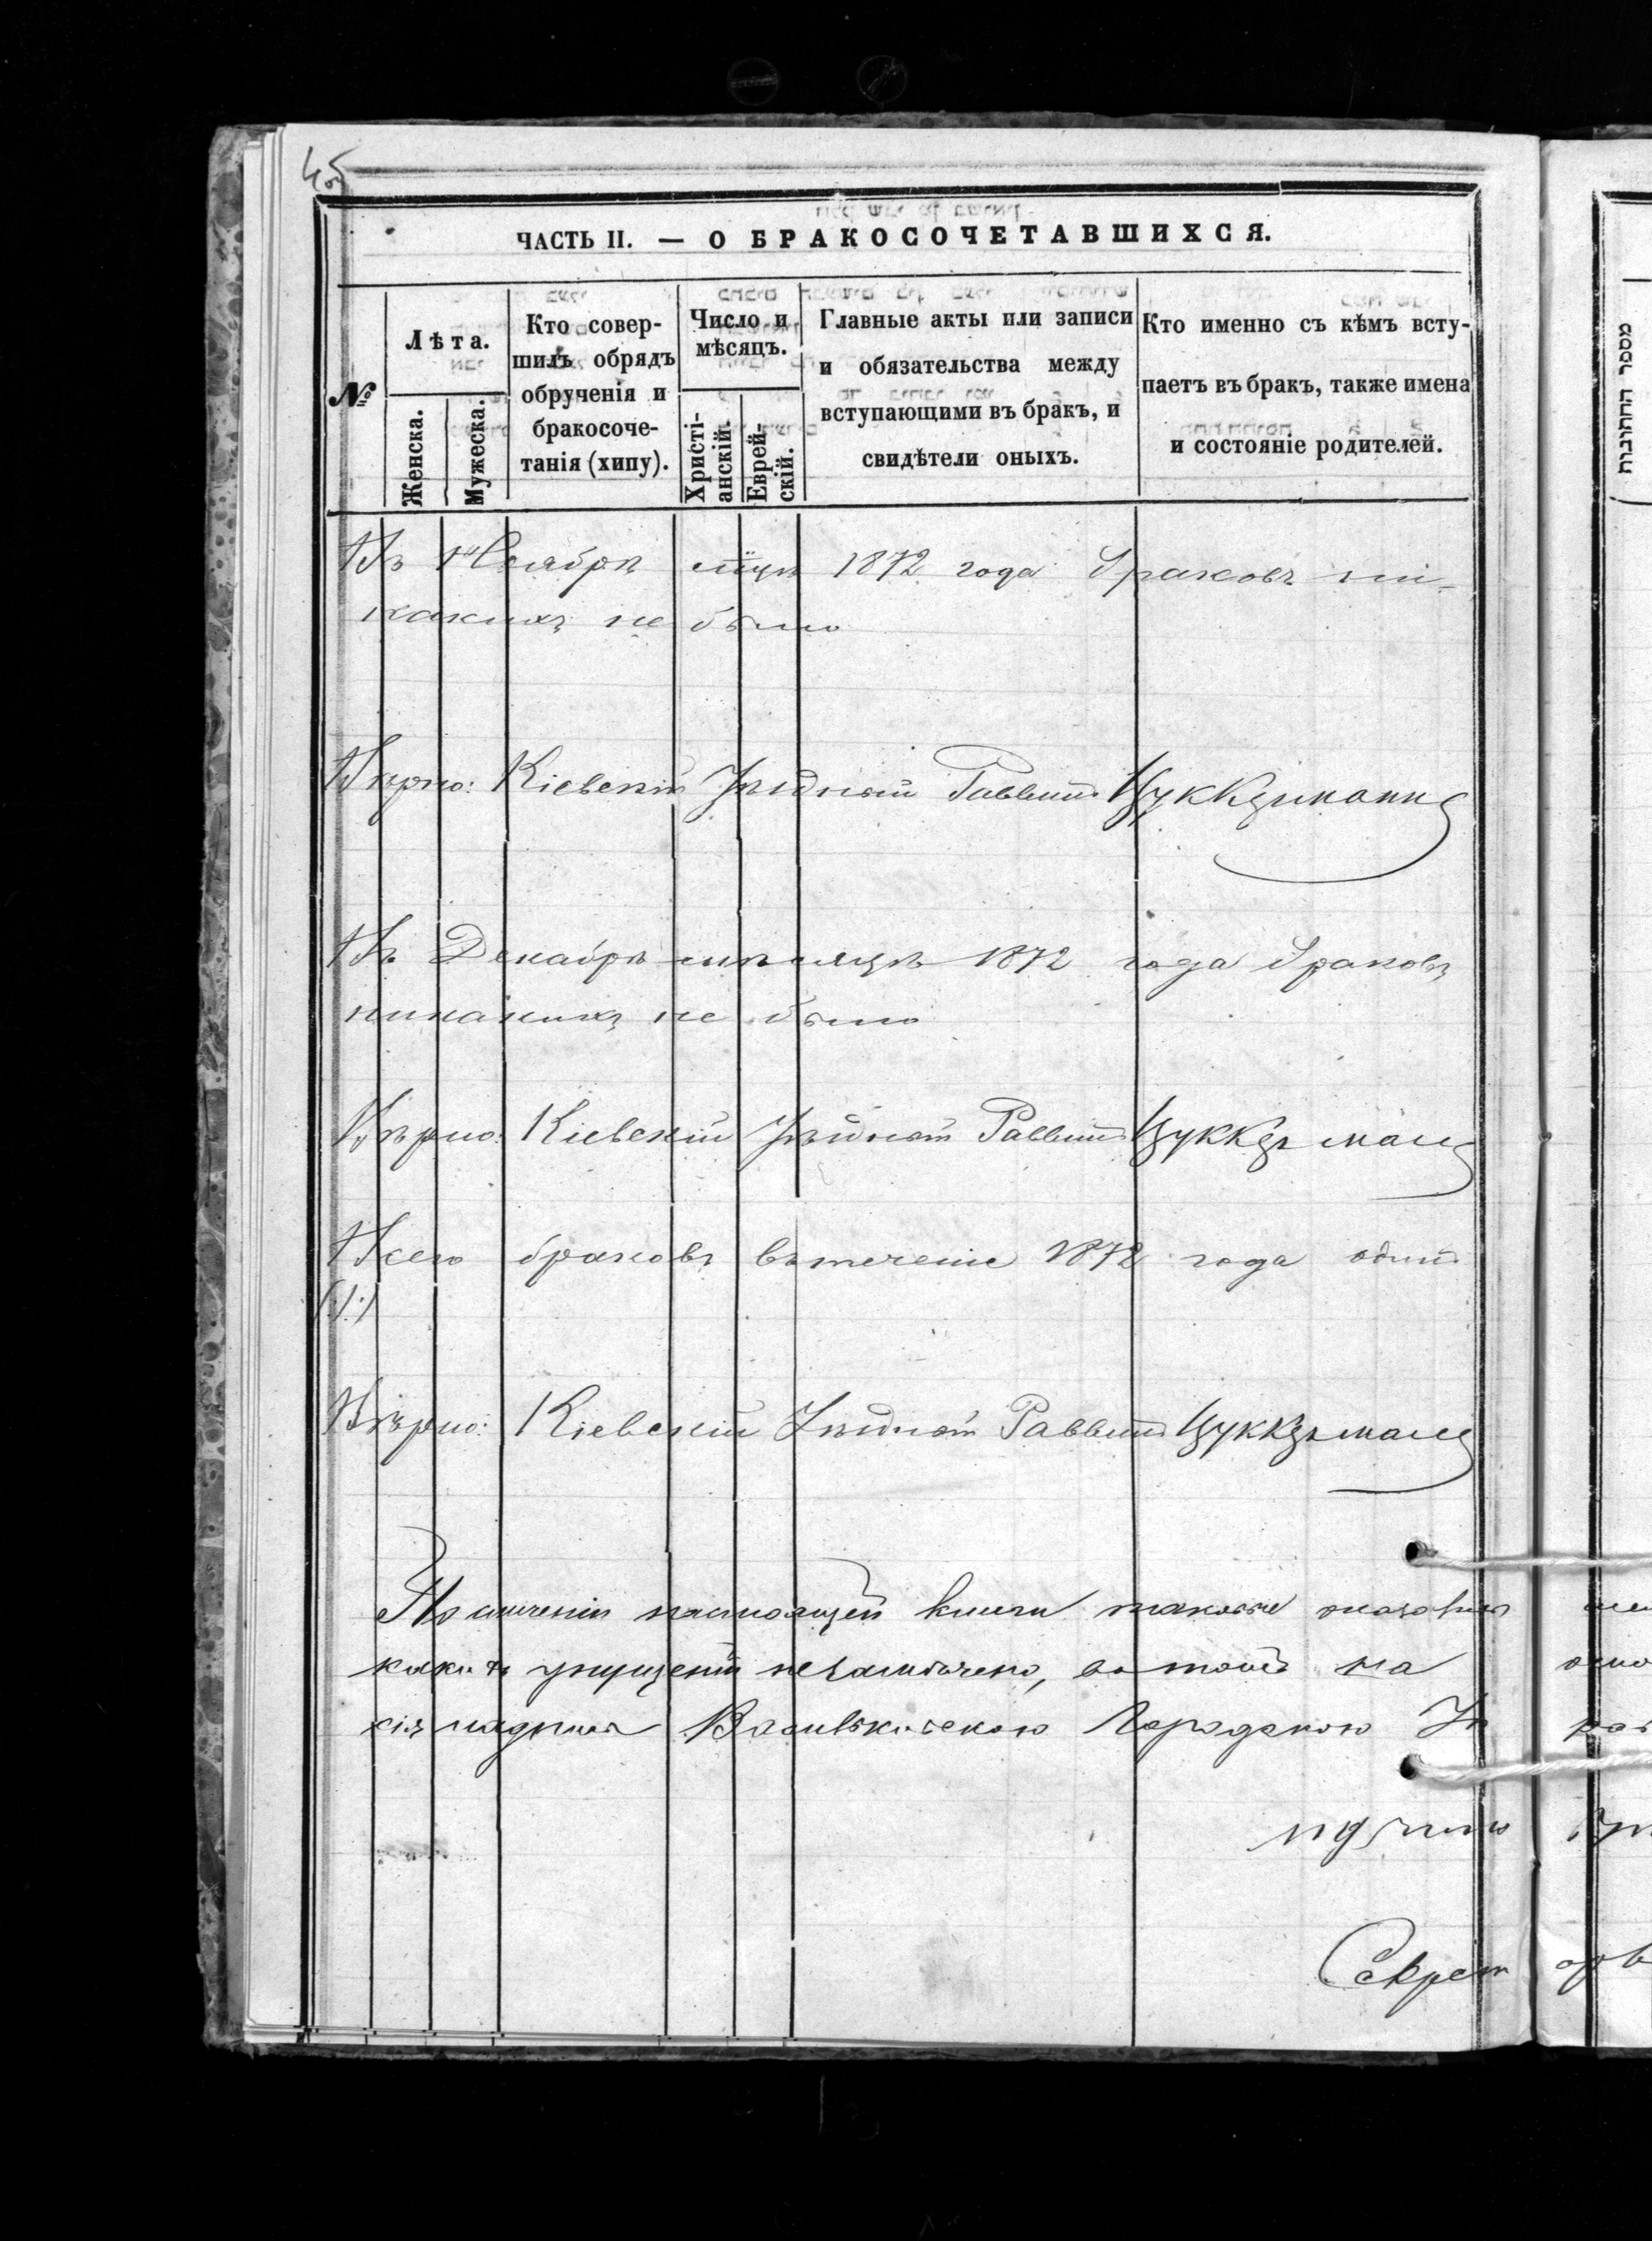 45
ЧАСТЬ II. — О БРАКОСОЧЕТАВШИХСЯ.
№
Лѣта.
Женска.
Мужеска.
Кто совер-
шилъ обрядъ
обрученія и
бракосоче-
танія (хипу).
Число и
мѣсяцъ.
Христі-
анскій.
Еврей-
скій.
Главные акты или записи
и обязательства между
вступающими въ бракъ, и
свидѣтели оныхъ.
Кто именно съ кѣмъ всту-
паетъ въ бракъ, также имена
и состояніе родителей.
Въ Ноябрѣ мцѣ 1872 года браковъ ни-
какихъ не было
Вѣрно: Кіевскій Уѣздный Раввинъ Цуккерманъ
Въ Декабрѣ мѣсяцѣ 1872 года браковъ
никакихъ не было
Вѣрно: Кіевскій Уѣздный Раввинъ Цуккерманъ
Всего браковъ въ теченіе 1872 года одинъ
(:1:)
Вѣрно: Кіевскій Уѣздный Раввинъ Цуккерманъ
По настоящей книги
упущеній незамѣчено, въ томъ на
сія надпись Васильковскою Городскою
Секрет
מספר החתונות